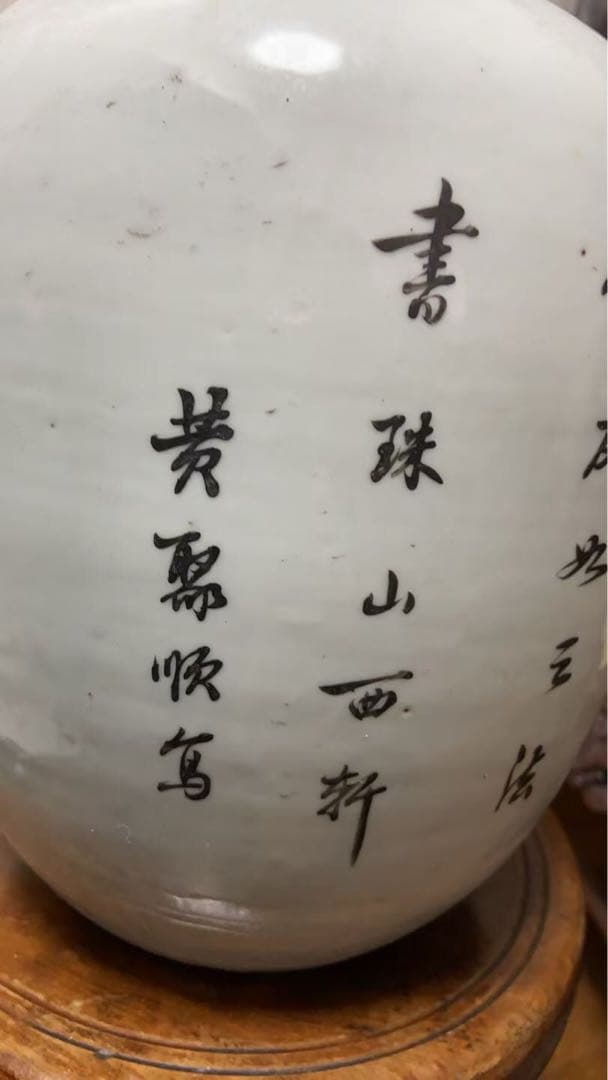 如云法
書珠山西軒
黄聚順寫